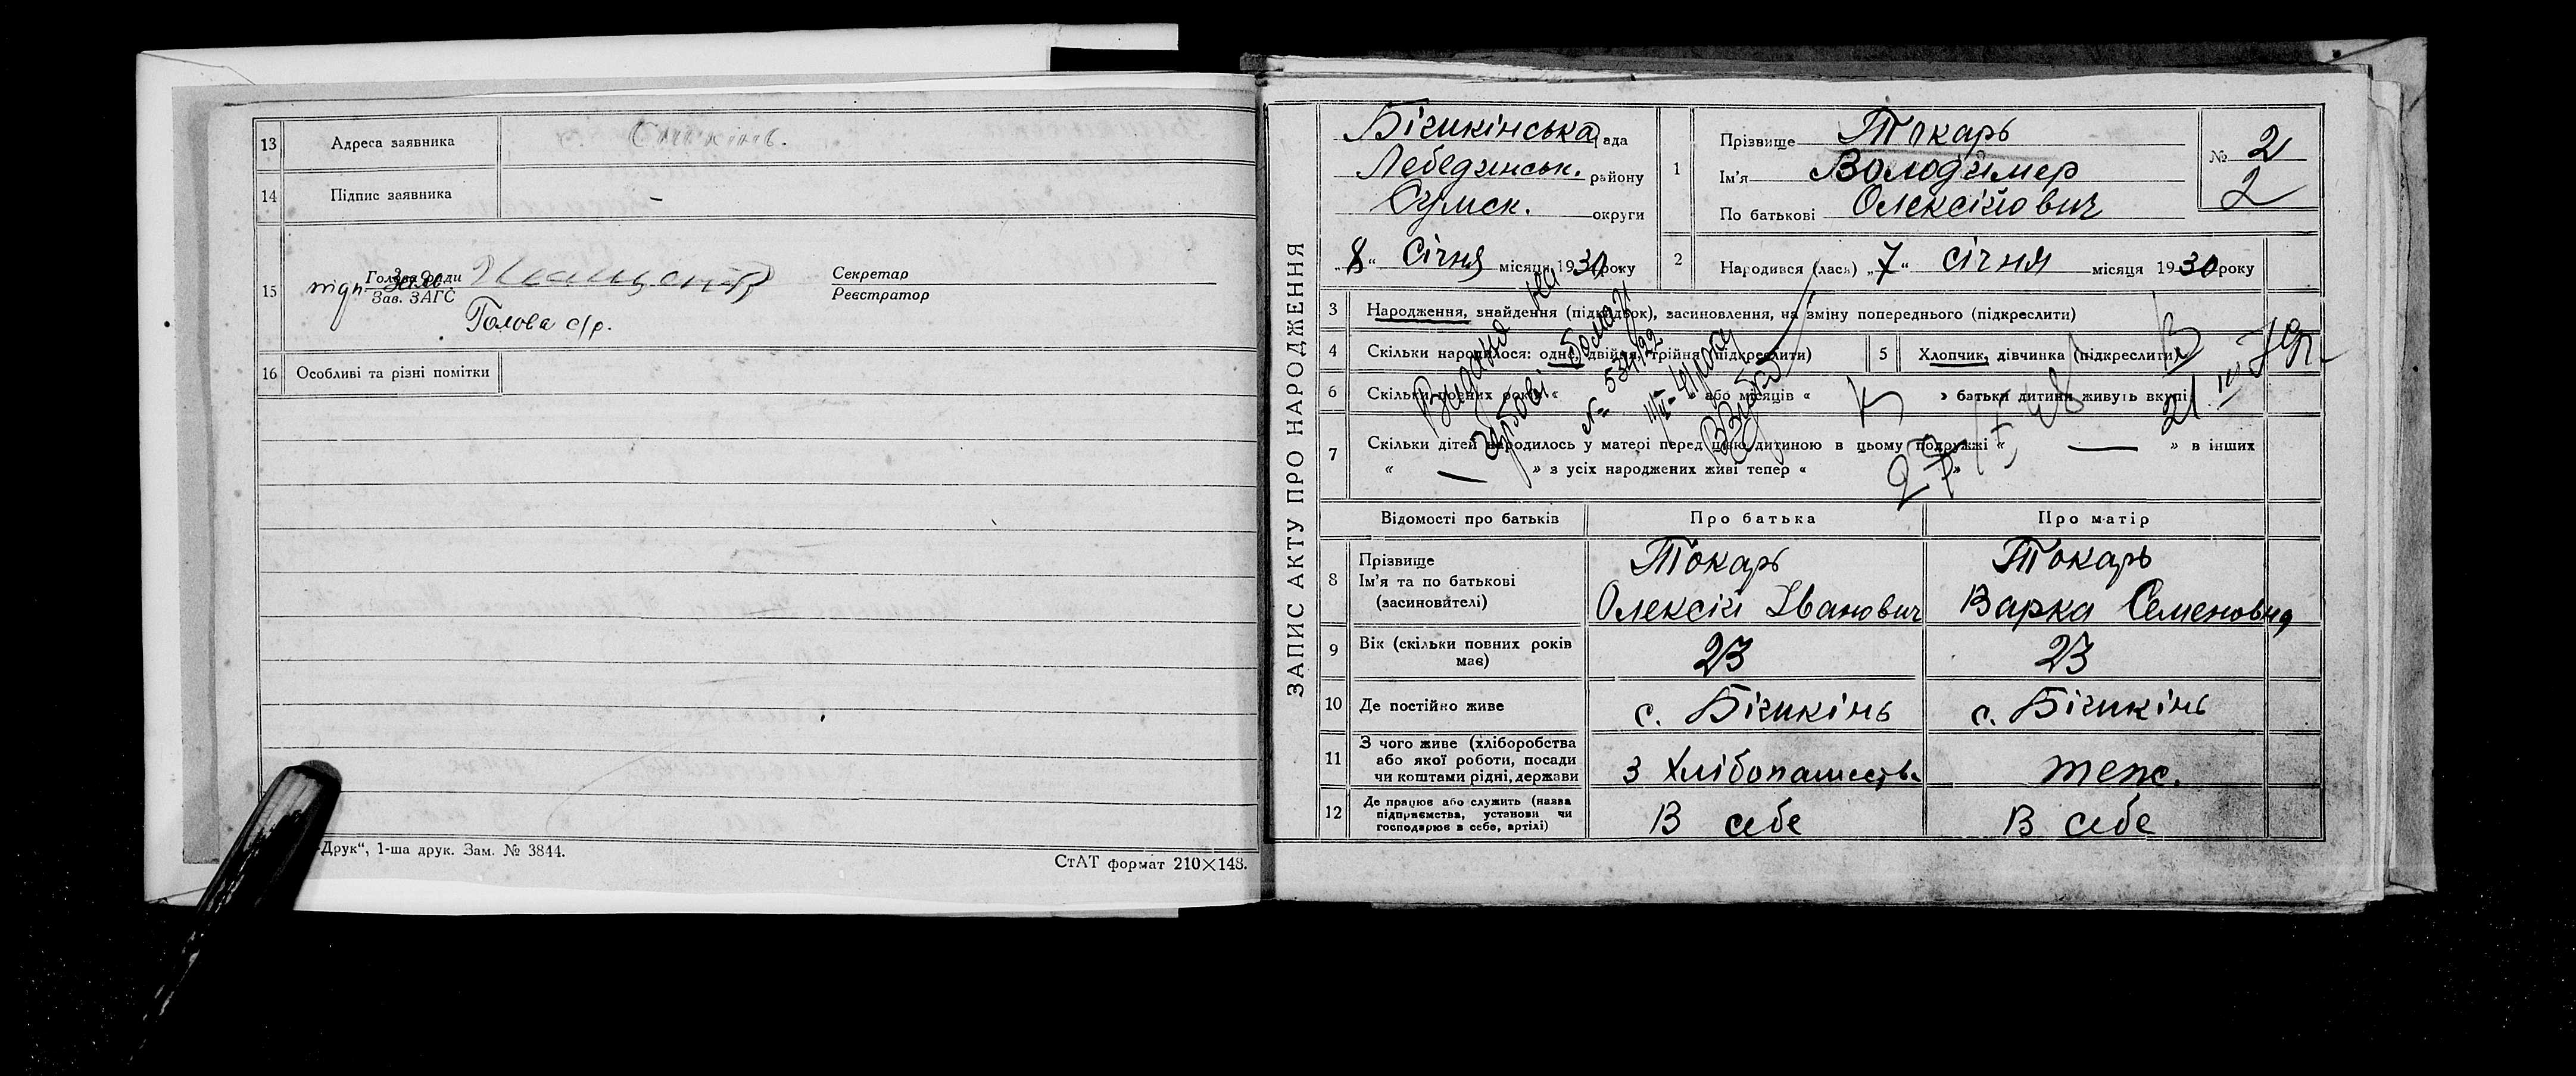 13 Адреса заявника
14 Підпис заявника —
15 Голова ради
Зав. ЗАГС
Секретар
Реєстратор
Голова с/р.
16 Особливі та різні помітки
Друк“, 1-ша друк. Зам. № 3844.
СтАТ формат 210×148.
ЗАПИС АКТУ ПРО НАРОДЖЕННЯ
Бішкінська рада
Лебединськ. району
Сумск. округи
„8“ Січня місяця 1930 року
1 Прізвище Токарь
Ім'я Володимер
По батькові Олексійович
№ 2
2
2 Народився (лася) „7“ січня місяця 1930 року
3 Народження, знайдення (підкидьок), засиновлення, на зміну попереднього (підкреслити)
4 Скільки народилося: одно, двійня, трійня (підкреслити)
5 Хлопчик, дівчинка (підкреслити)
6 Скільки повних років « » або місяців « » батьки дитини живуть вкупі
7 Скільки дітей народилось у матері перед цією дитиною в цьому подружжі « — » в інших
« — » з усіх народжених живі тепер « »
Відомості про батьків Про батька Про матір
8 Прізвище
Ім'я та по батькові
(засиновителі)
Токарь
Олексій Іванович
Токарь
Варка Семеновна
9 Вік (скільки повних років
має)
23
23
10 Де постійно живе
с. Бішкінь
с. Бішкінь
11 З чого живе (хліборобства
або якої роботи, посади
чи коштами рідні, держави
З Хлібопашеств.
теж.
12 Де працює або служить (назва
підприємства, установи чи
господарює в себе, артілі)
В себе
В себе